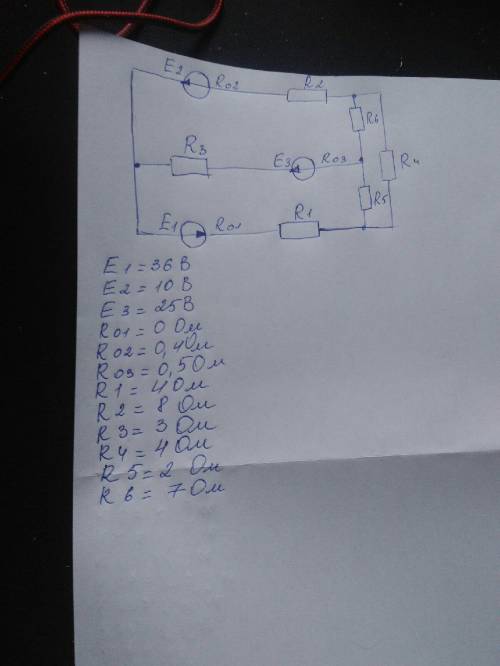 E2 R02 R2
R6
R3 E3 R03 R4
R5
E1 R01 R1
E1 = 36 В
E2 = 10 В
E3 = 25 В
R01 = 0 Ом
R02 = 0,4 Ом
R03 = 0,5 Ом
R1 = 4 Ом
R2 = 8 Ом
R3 = 3 Ом
R4 = 4 Ом
R5 = 2 Ом
R6 = 7 Ом